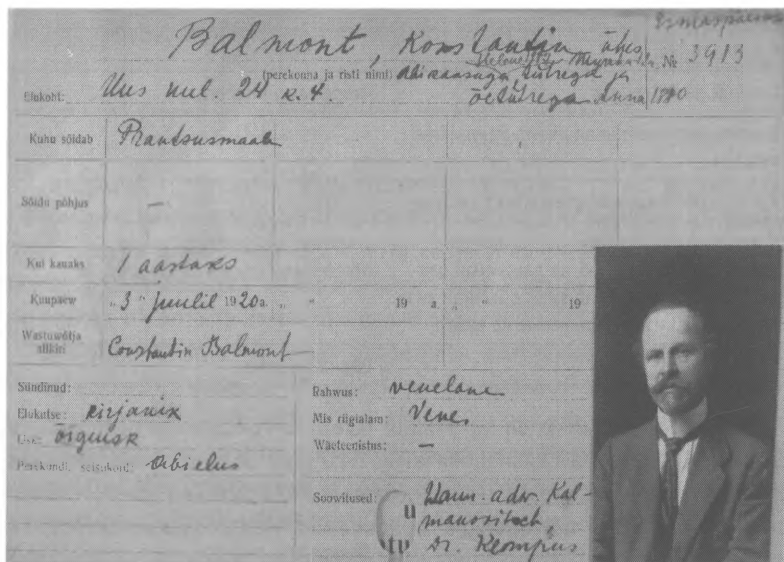 Esmaspäeval
Balmont, Konstantin ühes
№ 3913
(perekonna ja risti nimi) abikaasaga, tütrega ja
Elukoht: Uus uul. 24 k. 4. õetütrega Anna
Kuhu sõidab Prantsusmaale
Sõidu põhjus —
Kui kauaks 1 aastaks
Kuupäew „3" juulil 1920a. „ " 19 a. „ " 19
Wastuwõtja allkiri Constantin Balmont
Sündinud:
Elukutse: kirjanik
Usk: õigeusk
Perekondl. seisukord: abielus
Rahwus: venelane
Mis riigialam: Vene
Wäeteenistus: —
Soowitused: Vann. adv. Kal-
manovitsch,
Dr. Klompus